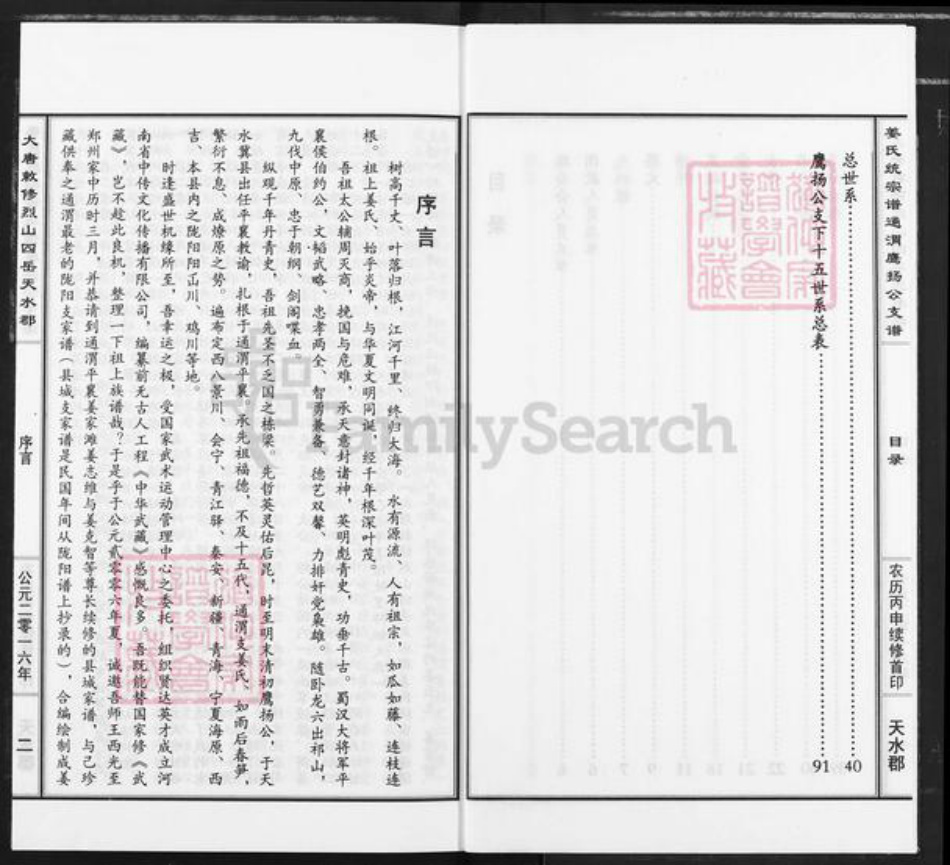 姜氏统宗谱通渭鹰扬公支谱
目录
农历丙申续修首印
天水郡
总世系 40
鹰扬公支下十五世系总表 91
序言
树高千丈、叶落归根,江河千里、终归大海。水有源流、人有祖宗,如瓜如藤、连枝连
根。祖上姜氏、始乎炎帝,与华夏文明同诞,经千年根深叶茂。
吾祖太公辅周灭商,挽国与危难,承天意封诸神,英明彪青史,功垂千古。蜀汉大将军平
襄侯伯约公,文韬武略、忠孝两全、智勇兼备。德艺双馨、力排奸党枭雄。随卧龙六出祁山,
九伐中原,忠于朝纲、剑阁喋血。
纵观千年丹青史,吾祖先圣不乏国之栋梁。先哲英灵佑后昆,时至明末清初鹰扬公,于天
水冀县出任平襄教谕,扎根于通渭平襄,承先祖福德,不及十五代、通渭支姜氏、如雨后春笋,
繁衍不息、成燎原之势。遍布定西八景川、会宁、青江驿、秦安、新疆、青海、宁夏海原、西
吉、本县内之陇阳阳正山川、鸡川等地。
时逢盛世机缘所至,吾幸运之极,受国家武术运动管理中心之委托,组织贤达英才成立河
南省中传文化传播有限公司,编纂前无古人工程《中华武藏》感慨良多。吾既能替国家修《武
藏》,岂不趁此良机,整理一下祖上族谱哉?于是乎于公元贰零零六年夏,诚邀吾师王西光至
郑州家中历时三月,并恭请到通渭平襄姜家滩姜志维与姜克智等尊长续修的县城家谱,与己珍
藏供奉之通渭最老的陇阳支家谱(县城支家谱是民国年间从陇阳谱上抄录的),合编绘制成姜
大唐敕修烈山四岳天水郡
序言
公元二零一六年
二
FamilySearch